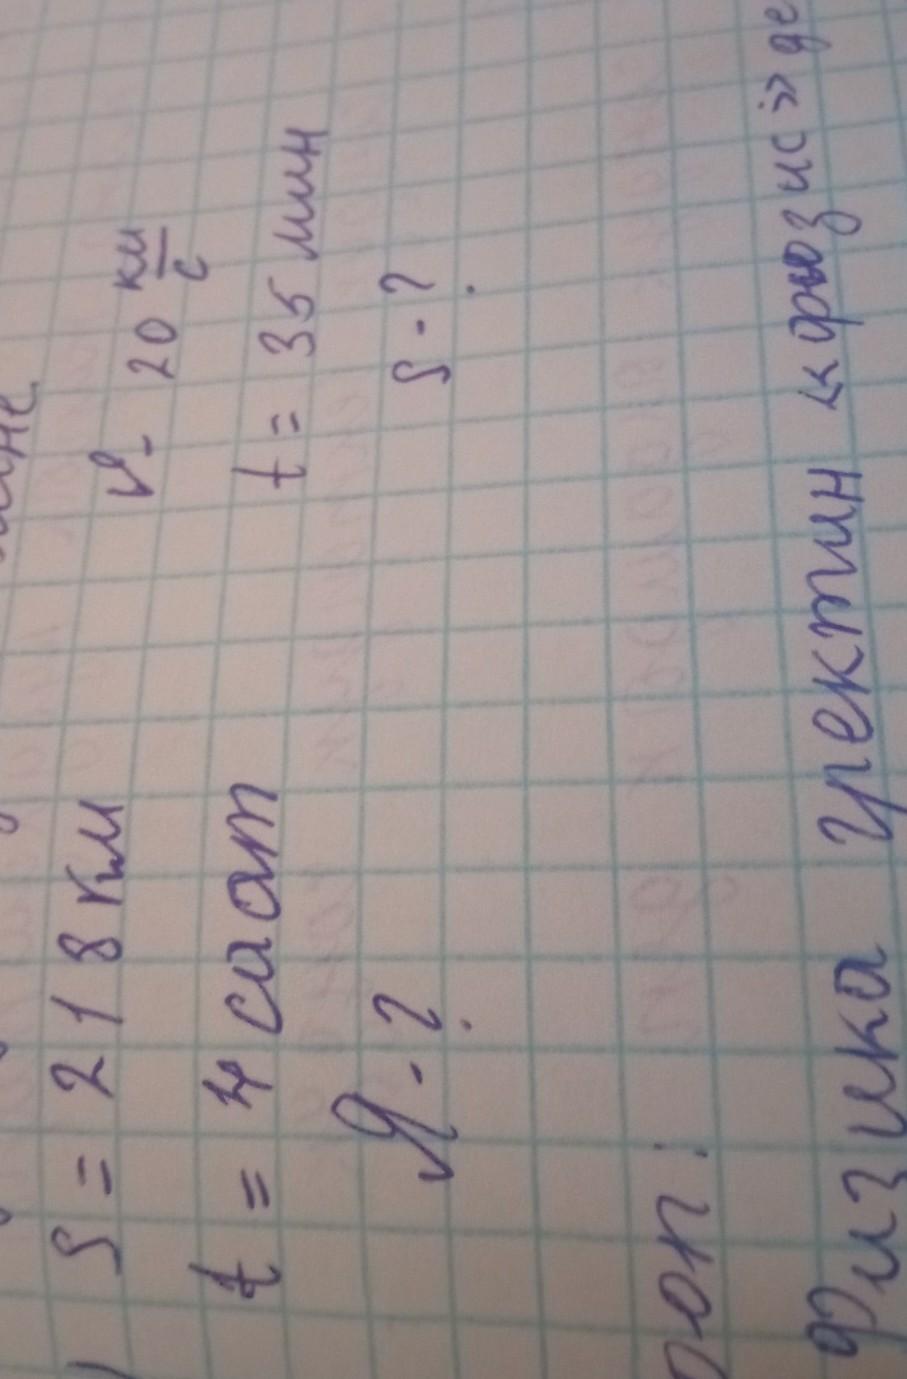 S = 218 км
t = 4 саат
V - ?
V - 20 км/с
t = 35 мин
S - ?
Физика гректин «фюзис» де